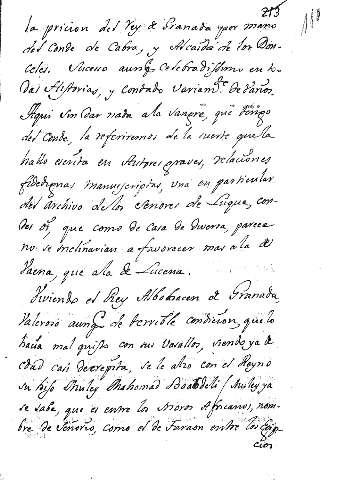 213
118
la pricion del Rey de Granada por mano
del Conde de Cabra, y Alcaide de los Don-
celes. Suceso aunq. celebradissimo en to-
das Historias, y contado variam.te de varios.
Aqui sin dar nada a la sangre, que tengo
del Conde, la referiremos de la suerte que la
hallo escrita en Autores graves, relaciones
fidedignas manuscriptas, una en particular
del Archivo de los Señores de Luque, con-
des oi, que como de casa de diversa, parece
no se inclinarian a favorecer mas a la de
Vaena, que a la de Lucena.
Viviendo el Rey Albohacen de Granada
Valeroso aunq. de terrible condicion, que lo
hacia mal quisto con sus Vasallos, siendo ya de
edad casi decrepita, se le alzo con el Reyno
su hijo Muley Mahomad Boabdeli / Muley ya
se sabe, que es entre los Moros Africanos, nom-
bre de Señorio, como el de Faraon entre los Egip-
cios